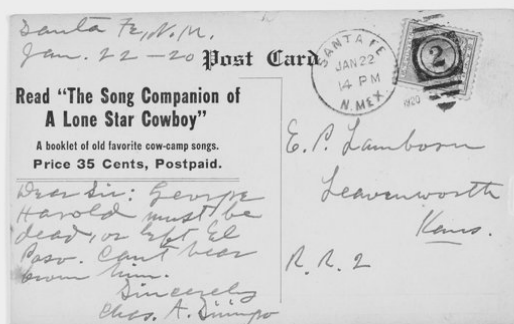 Santa Fe, N. M.
Jan. 22 - 20
Post Card
SANTA FE
JAN 22
4 PM
1920
N. MEX.
2
Read "The Song Companion of
A Lone Star Cowboy"
A booklet of old favorite cow-camp songs.
Price 35 Cents, Postpaid.
Dear Sir: George
Harold must be
dead, or left El
Paso. Can't hear
from him.
Sincerely
Chas. A. Siringo
E. P. Lamborn
Leavenworth
Kans.
R. R. 2